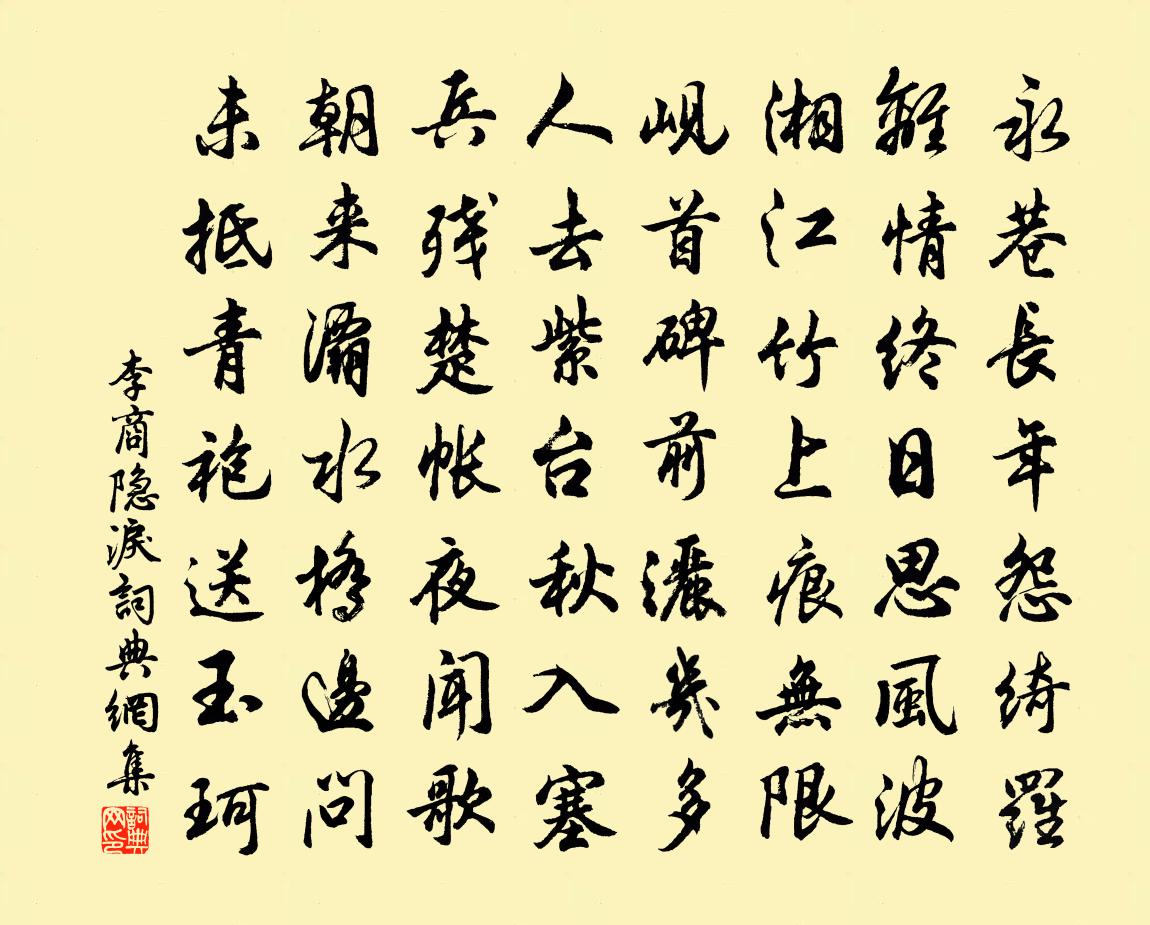 永巷長年怨綺羅
離情終日思風波
湘江竹上痕無限
峴首碑前灑幾多
人去紫台秋入塞
兵残楚帐夜聞歌
朝来灞水橋邊問
未抵青袍送玉珂
李商隐淚詞典網集
詞典网印